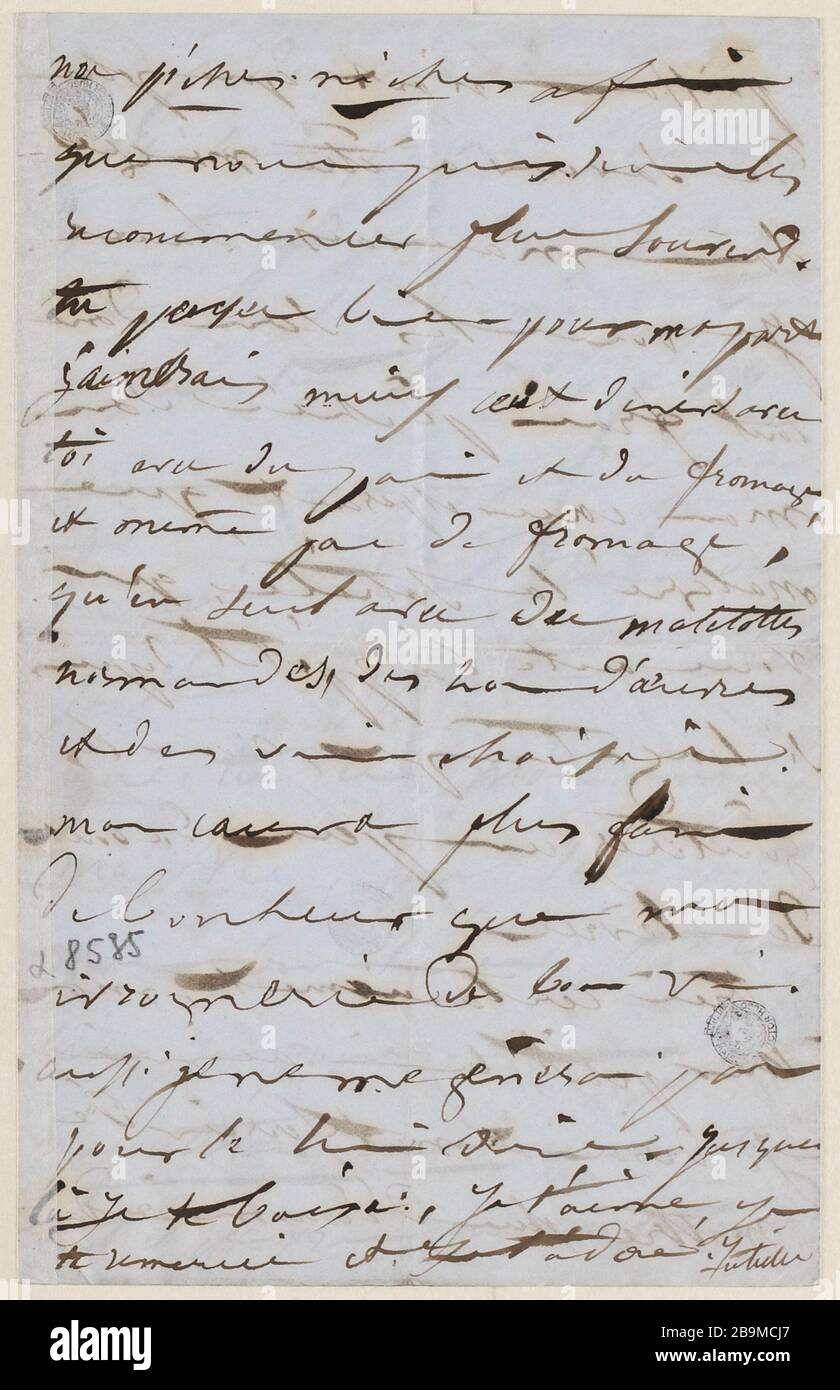 nos piches-niches afin
que nous puissions les
recommencer plus souvent.
tu penses bien pour ma part
j'aimerais mieux dîner avec
toi avec du pain et du fromage,
et même pas de fromage,
qu'en seul avec des matelottes
normandes, des hors d'œuvres
et des vins choisis.
mon cœur a plus faim
de bonheur que mon
ivrognerie de bon vin.
aussi je ne me gênerai pas
pour te le dire. jusque
là je te baise, je t'aime, je
te remercie et je t'adore. Juliette
α 8585
alamy
Image ID: 2B9MCJ7
www.alamy.com